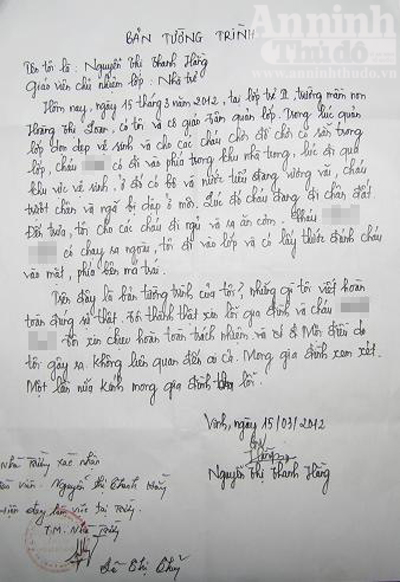 Anninh
Thủ đô
www.anninhthudo.vn
BẢN TƯỜNG TRÌNH
Tên tôi là : Nguyễn Thị Thanh Hằng
Giáo viên chủ nhiệm lớp : Nhà trẻ
Hôm nay, ngày 15 tháng 3 năm 2012, tại lớp trẻ II, trường mầm non
Hoàng Thị Loan, có tôi và cô giáo Trầm quản lớp. Trong lúc quản
lớp dọn dẹp vệ sinh và cho các cháu chơi đồ chơi có sẵn trong
lớp, cháu có đi vào phía trong khu nhà trong, lúc đi qua
khu vực vệ sinh, ở đó có bô và nước tiểu đang vương vãi, cháu
trượt chân và ngã bị dập ở môi. Lúc đó cháu đang đi chân đất.
Đến trưa, tôi cho các cháu đi ngủ và ra ăn cơm. Cháu
có chạy ra ngoài, tôi đi vào lớp và có lấy thước đánh cháu
vào mặt, phía bên má trái.
Trên đây là bản tường trình của tôi, những gì tôi viết hoàn
toàn đúng sự thật. Tôi thành thật xin lỗi gia đình và cháu
Tôi xin chịu hoàn toàn trách nhiệm và Mọi điều do
tôi gây ra. Không liên quan đến ai cả. Mong gia đình xem xét.
Một lần nữa kính mong gia đình tha lỗi.
Vinh, ngày 15/03/2012
Hằng
Nguyễn Thị Thanh Hằng
Nhà trường xác nhận
Giáo viên. Nguyễn Thị Thanh Hằng
hiện đang làm việc tại trường
T.M. Nhà Trường
Thị Thuỷ